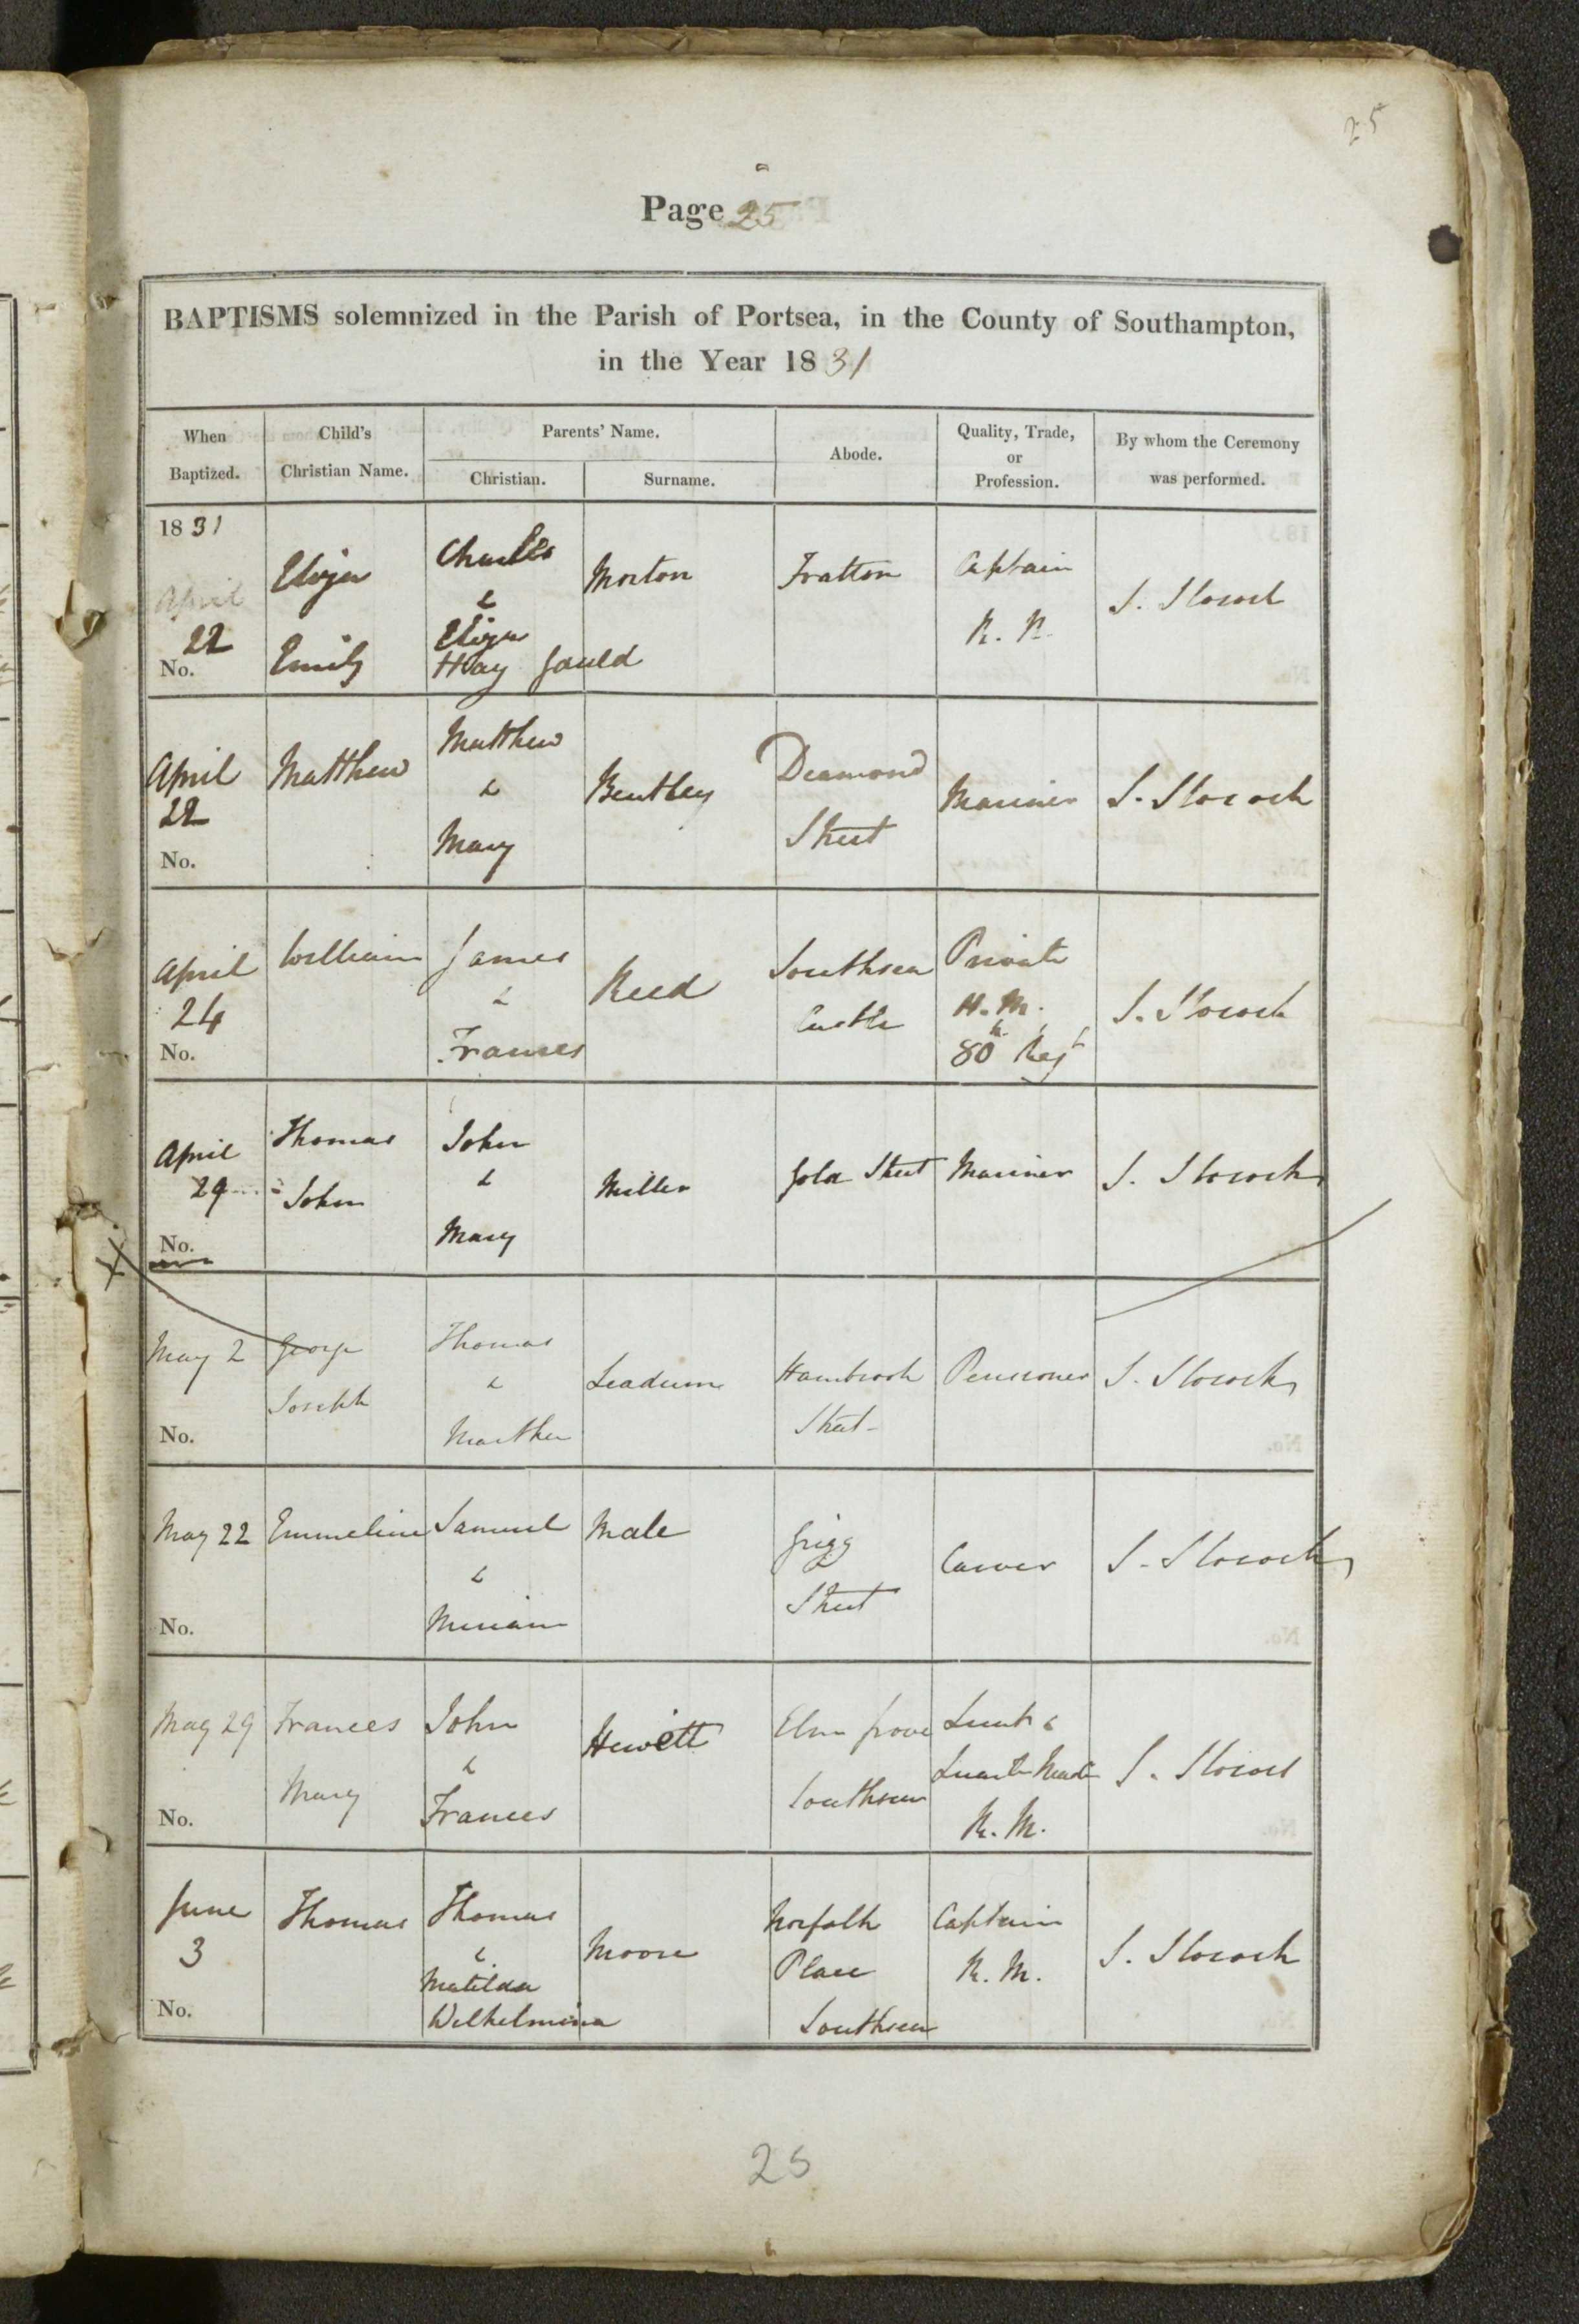 25
Page 25
BAPTISMS solemnized in the Parish of Portsea, in the County of Southampton,
in the Year 1831
When Baptized. Child's Christian Name. Parents' Name. Christian. Surname. Abode. Quality, Trade, or Profession. By whom the Ceremony was performed.
1831
April 22 Eliza Emily Charles & Eliza Hay Gauld Morton Fratton Captain R. N. S. Slocock
No.
April 22 Matthew Matthew & Mary Bentley Diamond Street Mariner S. Slocock
No.
April 24 William James & Frances Reed Southsea Castle Private H. M. 80th Regt S. Slocock
No.
April 29 Thomas John John & Mary Miller Gold Street Mariner S. Slocock
No.
May 2 George Joseph Thomas & Martha Leadum Hambrook Street Pensioner S. Slocock
No.
May 22 Emmeline Samuel & Miriam Male Grigg Street Carver S. Slocock
No.
May 29 Frances Mary John & Frances Hewett Elm Grove Southsea Lieut & R. M. S. Slocock
No.
June 3 Thomas Thomas & Matilda Wilhelmina Moore Norfolk Place Southsea Captain R. M. S. Slocock
No.
25